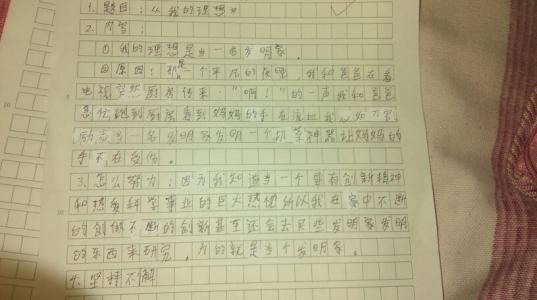 1. 题目:《我的理想》
2. 内容:
①我的理想是当一名发明家。
②原因:那是一个平凡的夜晚,我和爸爸在看
电视突然厨房传来"啊!"的一声我和爸爸
急忙跑到厨房看到妈妈的手在流血我
励志当一名发明家发明一个切菜神器让妈妈的
手不在受伤。
3、怎么努力:因为我知道当一个要有创新精神
和热爱科学事业的巨大热情所以我在家中不断
的创做不断的创新甚至还会去买些发明家发明
的东西来研究,为的就是当个发明家。
4、坚持不懈